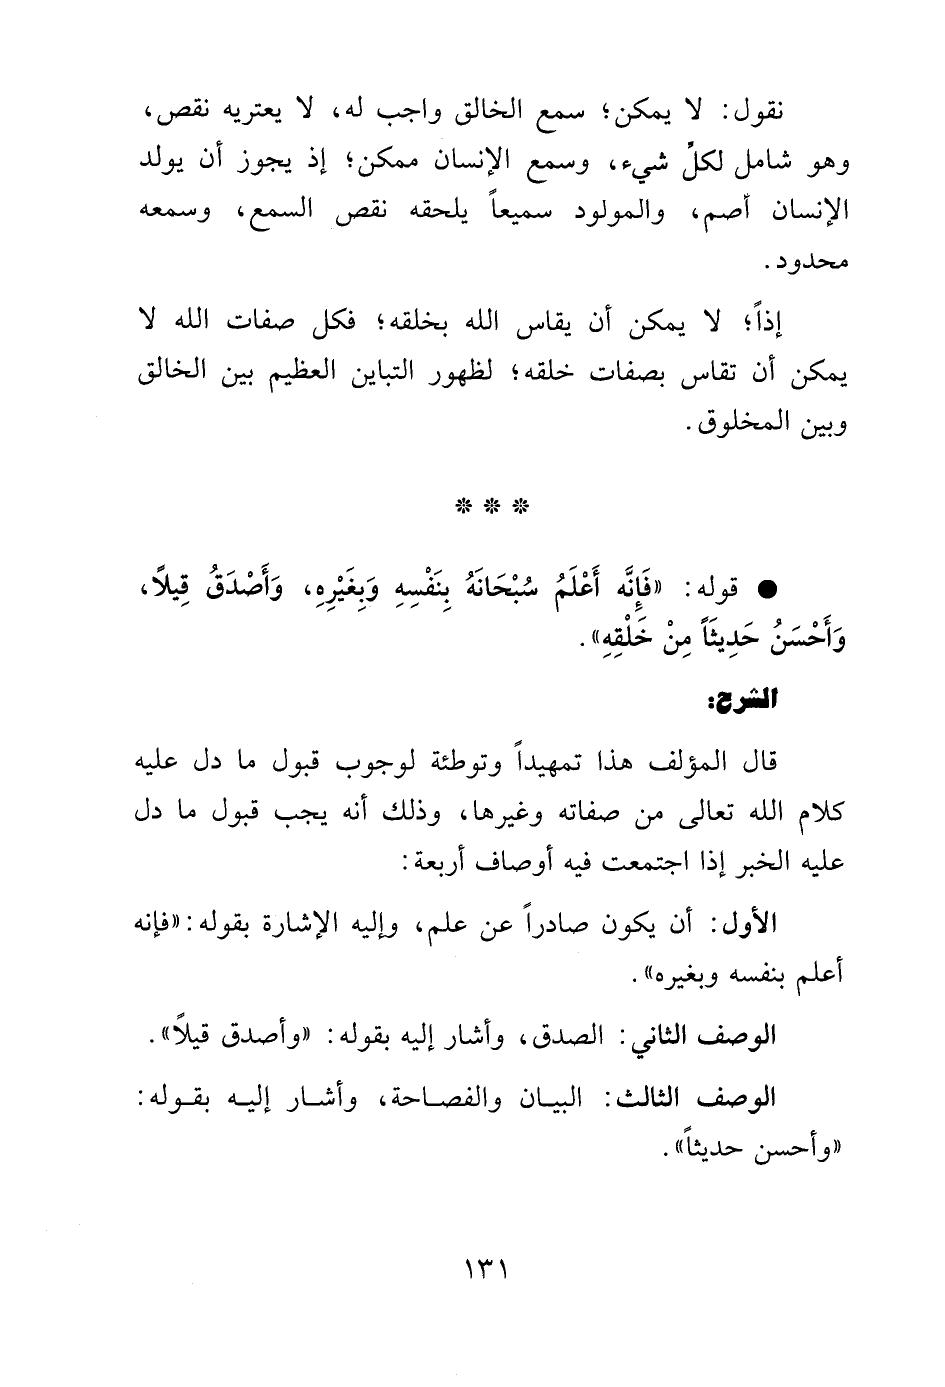 نقول: لا يمكن؛ سمع الخالق واجب له، لا يعتريه نقص،
وهو شامل لكلِّ شيء، وسمع الإنسان ممكن؛ إذ يجوز أن يولد
الإنسان أصم، والمولود سميعاً يلحقه نقص السمع، وسمعه
محدود.
إذاً؛ لا يمكن أن يقاس الله بخلقه؛ فكل صفات الله لا
يمكن أن تقاس بصفات خلقه؛ لظهور التباين العظيم بين الخالق
وبين المخلوق.
* * *
● قوله: «فَإِنَّه أَعْلَمُ سُبْحَانَهُ بِنَفْسِهِ وَبِغَيْرِهِ، وَأَصْدَقُ قِيلاً،
وَأَحْسَنُ حَدِيثَاً مِنْ خَلْقِهِ».
الشرح:
قال المؤلف هذا تمهيداً وتوطئة لوجوب قبول ما دل عليه
كلام الله تعالى من صفاته وغيرها، وذلك أنه يجب قبول ما دل
عليه الخبر إذا اجتمعت فيه أوصاف أربعة:
الأول: أن يكون صادراً عن علم، وإليه الإشارة بقوله: «فإنه
أعلم بنفسه وبغيره».
الوصف الثاني: الصدق، وأشار إليه بقوله: «وأصدق قيلاً».
الوصف الثالث: البيان والفصاحة، وأشار إليه بقوله:
«وأحسن حديثاً».
١٣١